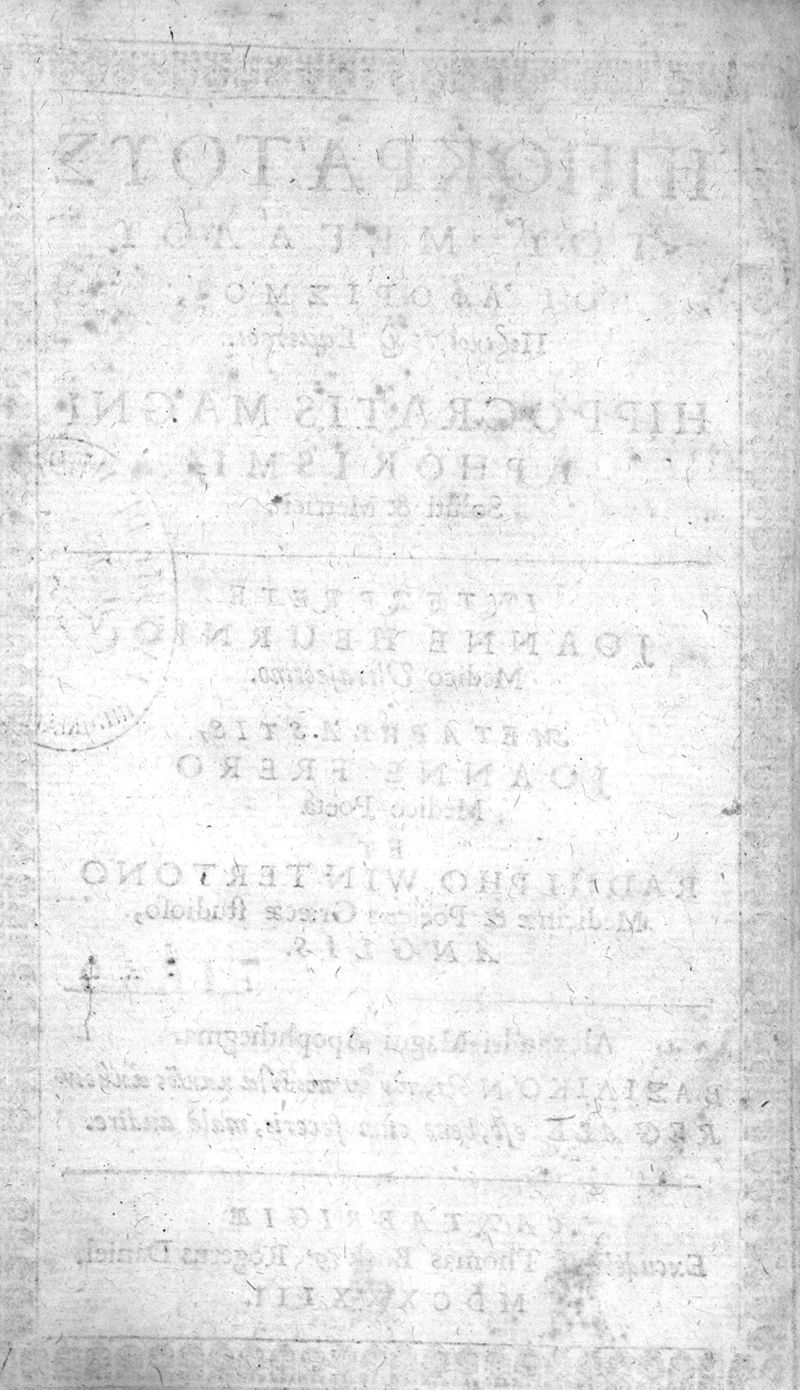 ΙΠΠΟΚΡΑΤΟΥΣ
ΤΟΥ ΜΕΓΑΛΟΥ
ΟΙ ΑΦΟΡΙΣΜΟΙ,
HIPPOCRATIS MAGNI
APHORISMI,
Soluti & Metrici.
INTERPRETE
JOANNE HEURNIO
Medico Ultrajectino.
METAPHRASTIS,
JOANNE FRERO
Medico Poëtâ
ET
RADULPHO WINTERTONO
Medicinæ & Poëticæ Græcæ ſtudioſo,
ANGLIS.
Alexandri Magni Apophthegma.
ΒΑΣΙΛΙΚΟΝ
REGALE eſt, bene cùm feceris, malè audire.
CANTABRIGIÆ
Excudebant Thomas Buck & Rogerus Daniel.